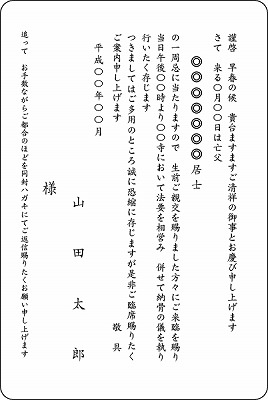 謹啓　早春の候　貴台ますますご清祥の御事とお慶び申し上げます
さて　来る〇月〇〇日は亡父
◎◎◎◎◎◎◎居士
の一周忌に当たりますので　生前ご親交を賜りました方々にご来臨を賜り
当日午後〇〇時より〇〇寺において法要を相営み　併せて納骨の儀を執り
行いたく存じます
つきましてはご多用のところ誠に恐縮に存じますが是非ご臨席賜りたく
ご案内申し上げます
敬具
平成〇〇年〇〇月
山田太郎
様
追って　お手数ながらご都合のほどを同封ハガキにてご返信賜りたくお願い申し上げます